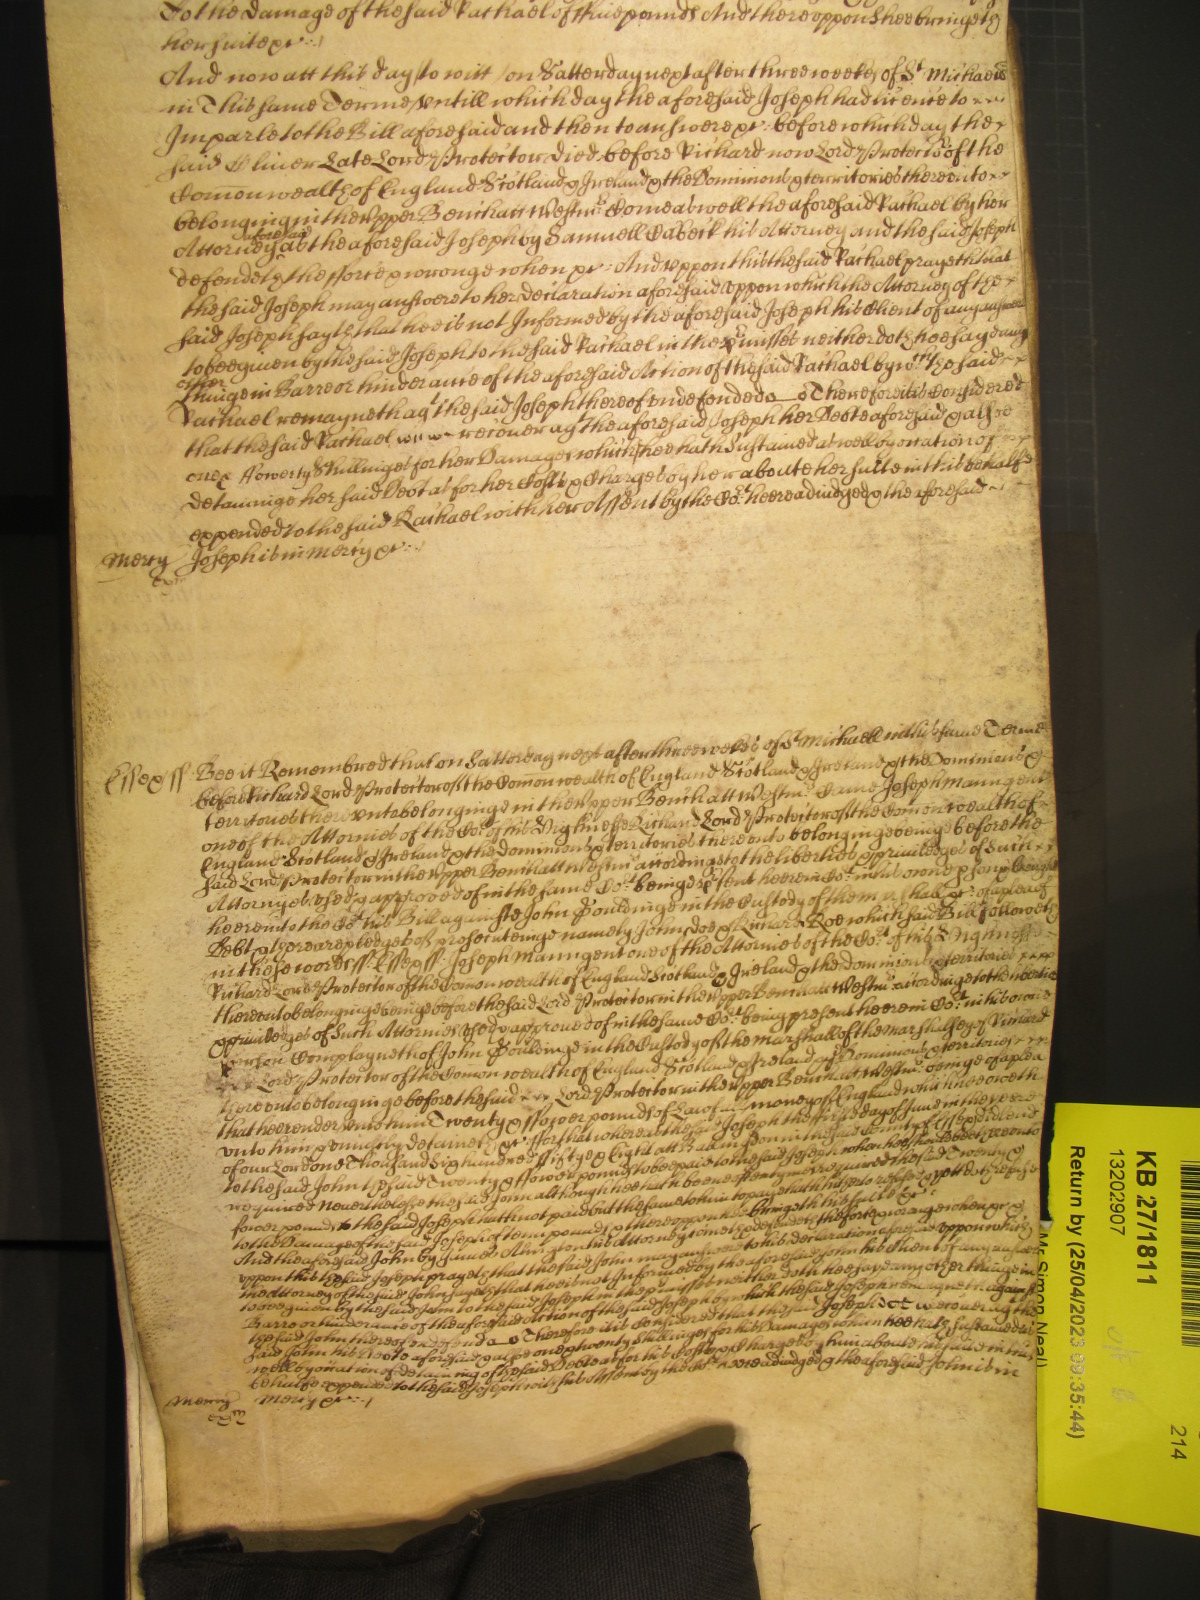 To the Damage of the said Rachael of five pounds And thereuppon shee bringeth
her suite &c
And now att this day to witt on Satterday next after three weekes of St Michaell
in This same Terme untill which day the aforesaid Joseph had licence to
Imparle to the Bill aforesaid and then to answere &c before which day the
said Oliver Late Lord Protector died before Richard now Lord Protector of the
Comonwealth of England Scotland & Ireland & the Dominions & territories thereunto
belonging in the Upper Bench att Westmr Come aswell the aforesaid Rachael by her
Attorney aforesaid as the aforesaid Joseph by Samuell his Attorney and the said Joseph
defendeth the force & wronge when &c And uppon this the said Rachael prayeth that
the said Joseph may answere to her declaration aforesaid uppon which the Attorney of the
said Joseph sayth that hee is not Informed by the aforesaid Joseph his Client of any answer
to bee given by the said Joseph to the said Rachael in the premisses neither doth hee say any
other thinge in Barre or hinderance of the aforesaid Action of the said Rachael by wch the said
Rachael remayneth agt the said Joseph thereof undefended Therefore it is Considered
that the said Rachael recover agt the aforesaid Joseph her Debt aforesaid & alsoe
one & Twenty Shillinges for her Damages which shee hath Sustained aswell by occation of
detaininge her said Debt as for her Costs & Charges by her aboute her suite in this behalfe
expended to the said Rachael with her Assent by the Cort heere adiudged & the aforesaid
Mercy Joseph is in Mercy &c
Essex ss Bee it Remembred that on Satterday next after three weekes of St Michaell in this same Terme
before Richard Lord Protector of the Comonwealth of England Scotland & Ireland & the Dominions &
territories thereunto belonginge in the Upper Bench att Westmr Came Joseph Manngent
one of the Attornies of the Cort of his Highnesse Richard Lord Protector of the Comonwealth of
England Scotland & Ireland & the dominions & territories thereunto belonginge beinge before the
said Lord Protector in the Upper Bench att Westmr accordinge to the liberties & priviledges of such
Attornyes used & approved of in the same Cort beinge psent heere in Cort in his owne pson & brought
heere into the Cort his Bill against John Gouldinge in the Custody of the Marshall &c of a plea of
Debt & there are pledges of prosecutinge namely John Doe & Richard Roe which said Bill followeth
in these words ss Essex ss Joseph Manngent one of the Attornies of the Cort of his Highnesse
Richard Lord Protector of the Comonwealth of England Scotland & Ireland & the dominions & territories
thereunto belonginge beinge before the said Lord Protector in the Upper Bench att Westmr accordinge to the liberties
& priviledges of Such Attornies used & approved of in the same Cort being present heere in Cort in his owne
person Complayneth of John Gouldinge in the Custody of the Marshall of the Marshalsey of Richard
Lord Protector of the Comonwealth of England Scotland & Ireland & Dominions & territories
thereunto belonginge before the said Lord Protector in the Upper Bench att Westmr beinge of a plea
that hee render unto him Twenty & fower pounds of Lawfull money of England which hee oweth
unto him & uniustly detaineth &c for that whereas the said Joseph the first day of June in the yeere
of our Lord one Thousand Six hundred fiftye & Eight att in the said County of Essex did lend
to the said John the said Twenty & fower pounds to bee paid to the said Joseph when hee should bee thereunto
required Neverthelesse the said John although hee hath beene often tymes required the said Twenty &
fower pounds to the said Joseph hath not paid but the same to him to pay hath hitherto refused & yett doth refuse
to the Damage of the said Joseph of tenn pounds & thereuppon hee bringeth his suite &c
And the aforesaid John by his Attorney cometh & defendeth the force & wronge when &c &
uppon this the said Joseph prayeth that the said John may answere to his declaration aforesaid uppon which
the Attorney of the said John sayeth that hee is not Informed by the aforesaid John his Client of any answer
to bee given by the said John to the said Joseph in the premisses neither doth hee say any other thinge in
Barre or hinderance of the aforesaid Action of the said Joseph by which the said Joseph remayneth against
the said John thereof undefended Therefore it is Considered that the said Joseph recover agt the
said John his Debt aforesaid & alsoe one & twenty Shillinges for his Damages which hee hath Sustained as
well by occation of detaining of the said Debt as for his Costs & Charges by him about his suite in this
behalfe expended to the said Joseph with his Assent by the Cort heere adiudged & the aforesaid John is in
Mercy Mercy &c
KB 27/1811
13202907
Return by (25/04/2023 09:35:44)
Mr Simon Neal
214